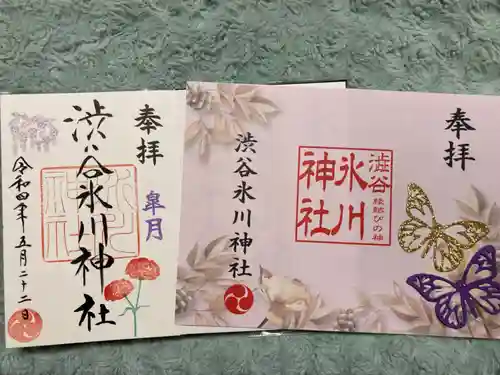 奉拝
渋谷氷川神社
皐月
令和四年五月二十二日
奉拝
澁谷
氷川
神社
縁結びの神
渋谷氷川神社